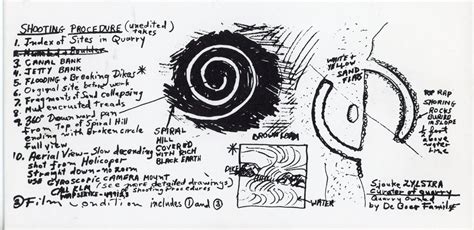 SHOOTING PROCEDURE (unedited) takes
1. Index of Sites in Quarry
3. CANAL BANK
4. JETTY BANK
5. FLOODING + Breaking Dikes
6. Original Site before work
7. Fragments of Sand Collapsing
8. Mud encrusted treads
9. 360° Downward pan
from Top of Spiral Hill
ending with Broken circle
Full view
10. Aerial View - Slow decending
shot from Helicoper
straight down - no zoom
USE GYROSCOPIC CAMERA MOUNT
CALL
(see more detailed drawings)
shooting procedures
② Film condition includes ① and ③
SPIRAL
HILL
COVERED
WITH RICH
BLACK EARTH
BROKEN
WATER
WHITE +
YELLOW
SAND
FLATS
RIP RAP
SHORING
ROCKS
BURIED
IN SLOPE
1 foot
above
water
line
Sjouke ZYLSTRA
curator of quarry
Quarry owned
by De Boer Family